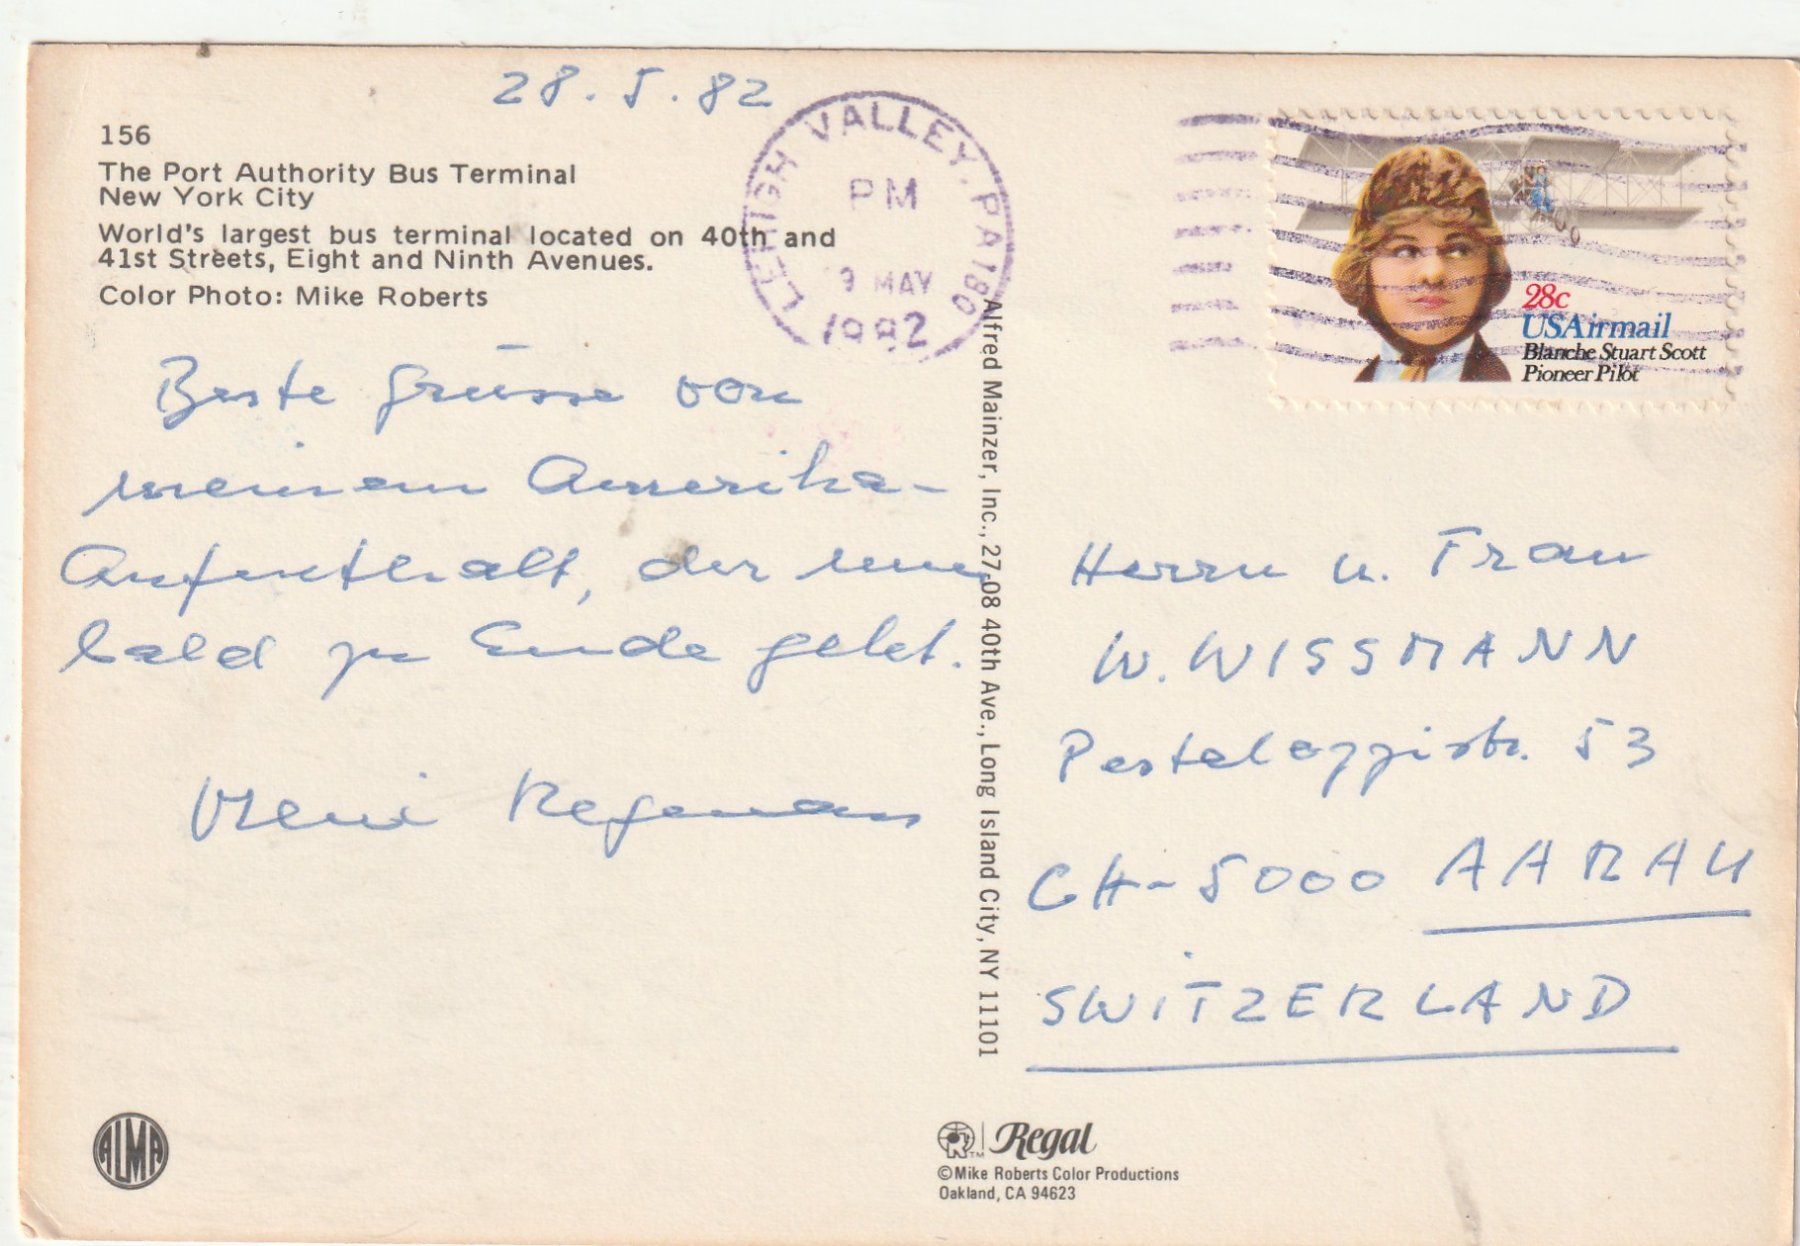 28.5.82
156
The Port Authority Bus Terminal
New York City
World's largest bus terminal located on 40th and
41st Streets, Eight and Ninth Avenues.
Color Photo: Mike Roberts
LEHIGH VALLEY, PA 180
PM
9 MAY
1982
28c
USAirmail
Blanche Stuart Scott
Pioneer Pilot
Beste Grüsse von
meinem Amerika-
Aufenthalt, der nun
bald zu Ende geht.
Vreni
Alfred Mainzer, Inc., 27-08 40th Ave., Long Island City, NY 11101
Herrn u. Frau
W. WISSMANN
Pestalozzistr. 53
CH-5000 AARAU
SWITZERLAND
ALMA
Regal
©Mike Roberts Color Productions
Oakland, CA 94623